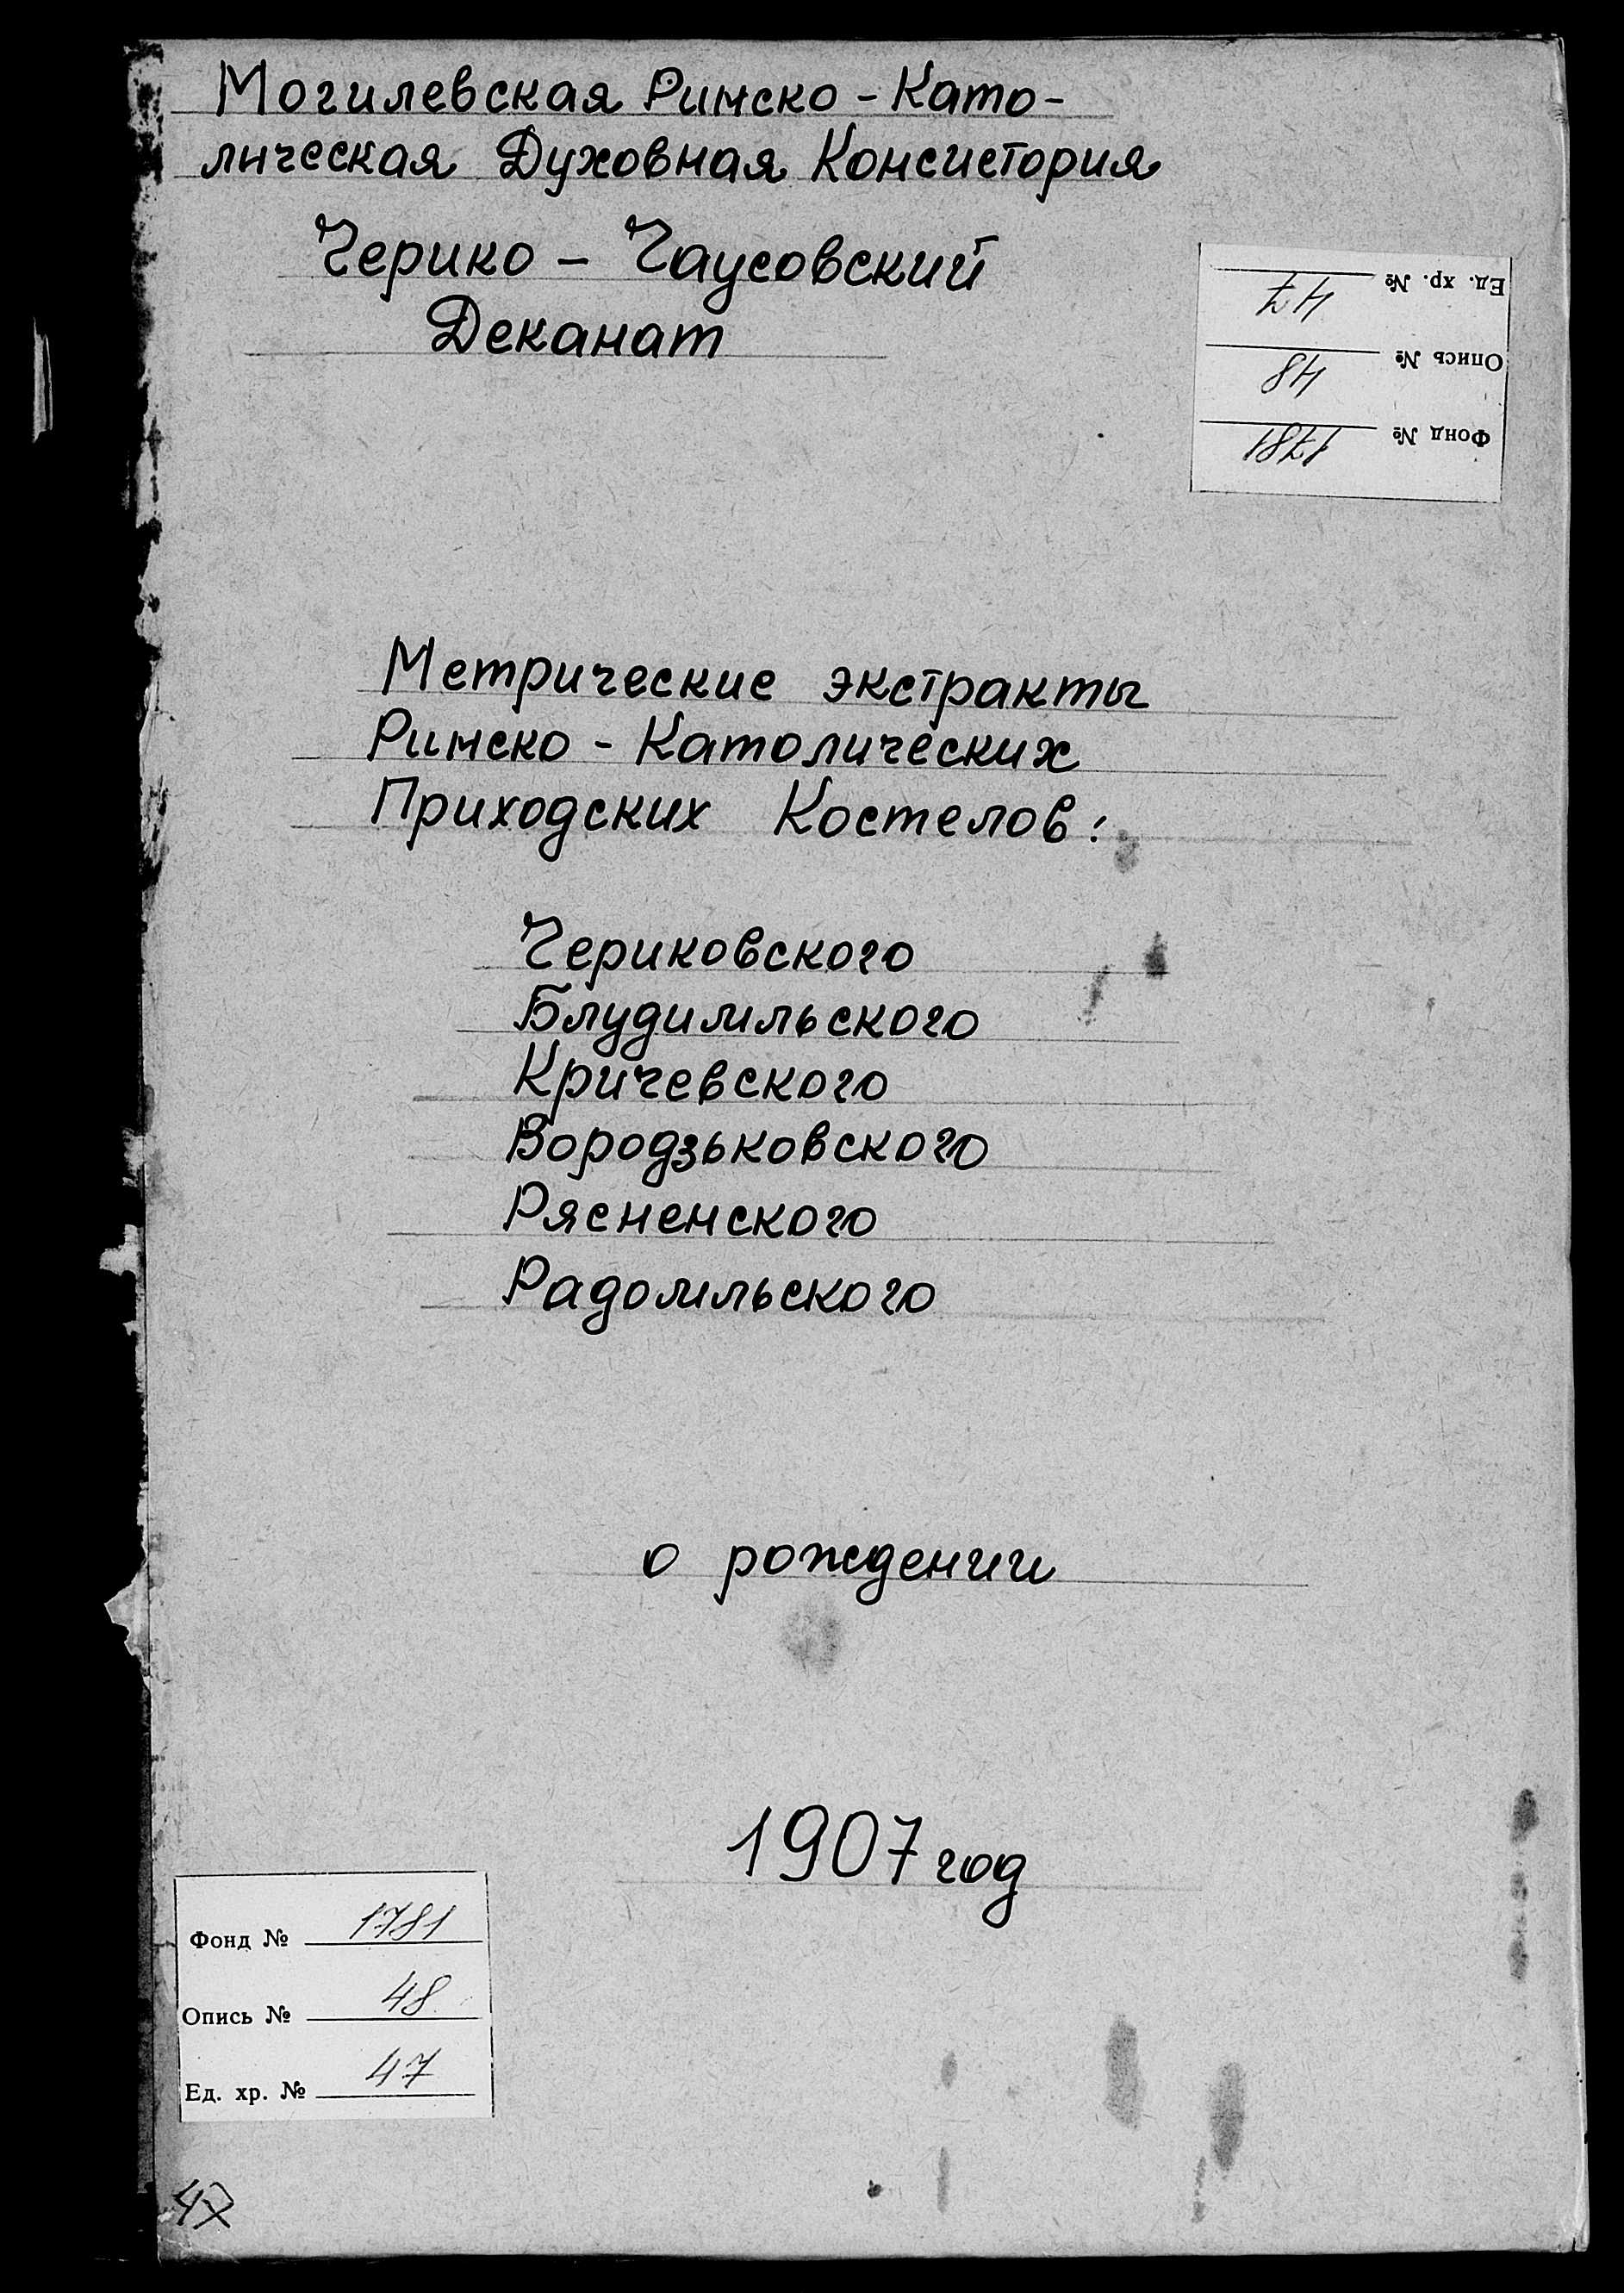 Могилевская Римско-Като-
лическая Духовная Консистория
Черико - Чаусовский
Деканат
Ед. хр. № 47
Опись № 48
Фонд № 1781
Метрические экстракты
Римско - Католических
Приходских Костелов:
Чериковского
Блудимльского
Кричевского
Вородзьковского
Рясненского
Радомльского
о рождении
1907 год
Фонд № 1781
Опись № 48
Ед. хр. № 47
47